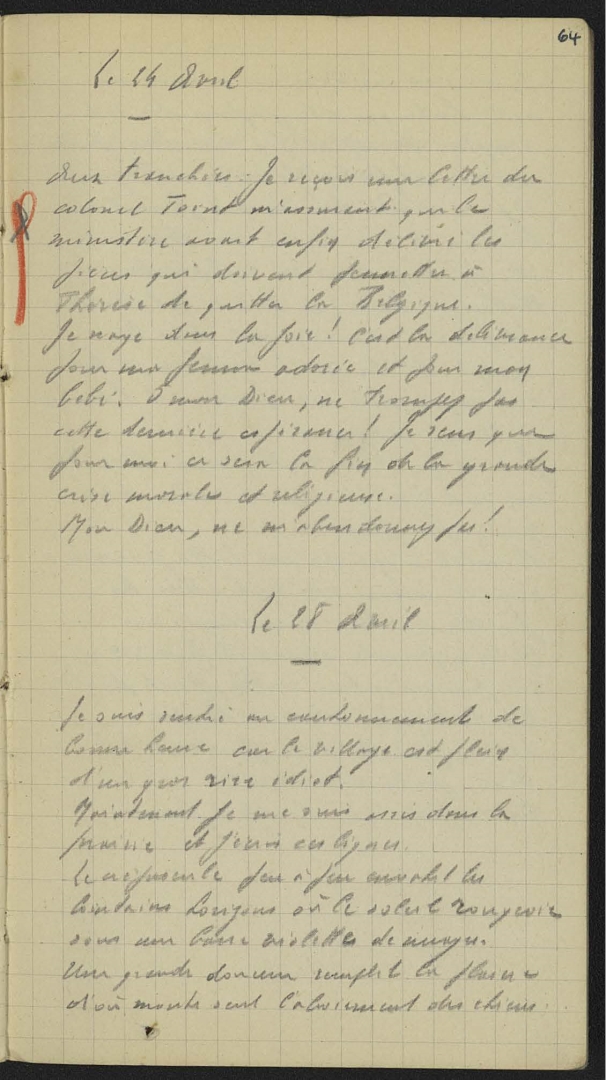 64
Le 24 Avril
Aux tranchées. Je reçois une lettre du
colonel Toint m'assurant que le
ministère avait enfin délivré les
pièces qui doivent permettre à
Thérèse de quitter la Belgique.
Je nage dans la joie! C'est la délivrance
pour ma femme adorée et pour mon
bébé. O mon Dieu, ne trompez pas
cette dernière espérance! Je sens que
pour moi ce sera la fin de la grande
crise morale et religieuse.
Mon Dieu, ne m'abandonnez pas!
Le 28 Avril
Je suis rentré au cantonnement de
bonne heure car le village est plein
d'un gros rire idiot.
Maintenant je me suis assis dans la
prairie et j'écris ces lignes.
Le crépuscule peu à peu envahit les
lointains horizons où le soleil rougeoie
sous une barre violette de nuages.
Une grande douceur remplit la plaine
d'où monte seul l'aboiement des chiens.